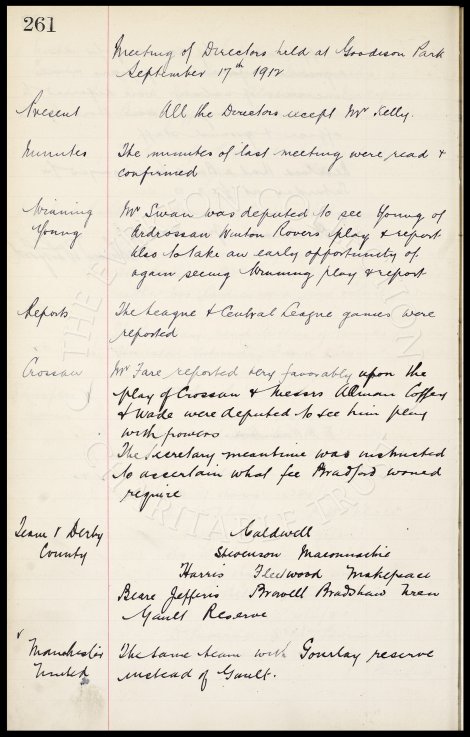 261
Meeting of Directors held at Goodison Park
September 17th 1912
Present All the Directors except Mr Kelly.
Minutes The minutes of last meeting were read &
confirmed
Winning Mr Swan was deputed to see Young of
Young Ardrossan Winton Rovers play & report
also to take an early opportunity of
again seeing Winning play & report
Reports The League & Central League games were
reported
Crossan Mr Fare reported very favorably upon the
play of Crossan & Messrs Allman Coffey
& Wade were deputed to see him play
with powers
The Secretary meantime was instructed
to ascertain what fee Bradford would
require
Team v Derby Caldwell
County Stevenson Maconnachie
Harris Fleetwood Makepeace
Beare Jefferis Browell Bradshaw Uren
Gault Reserve
v Manchester The same team with Gourlay reserve
United instead of Gault.